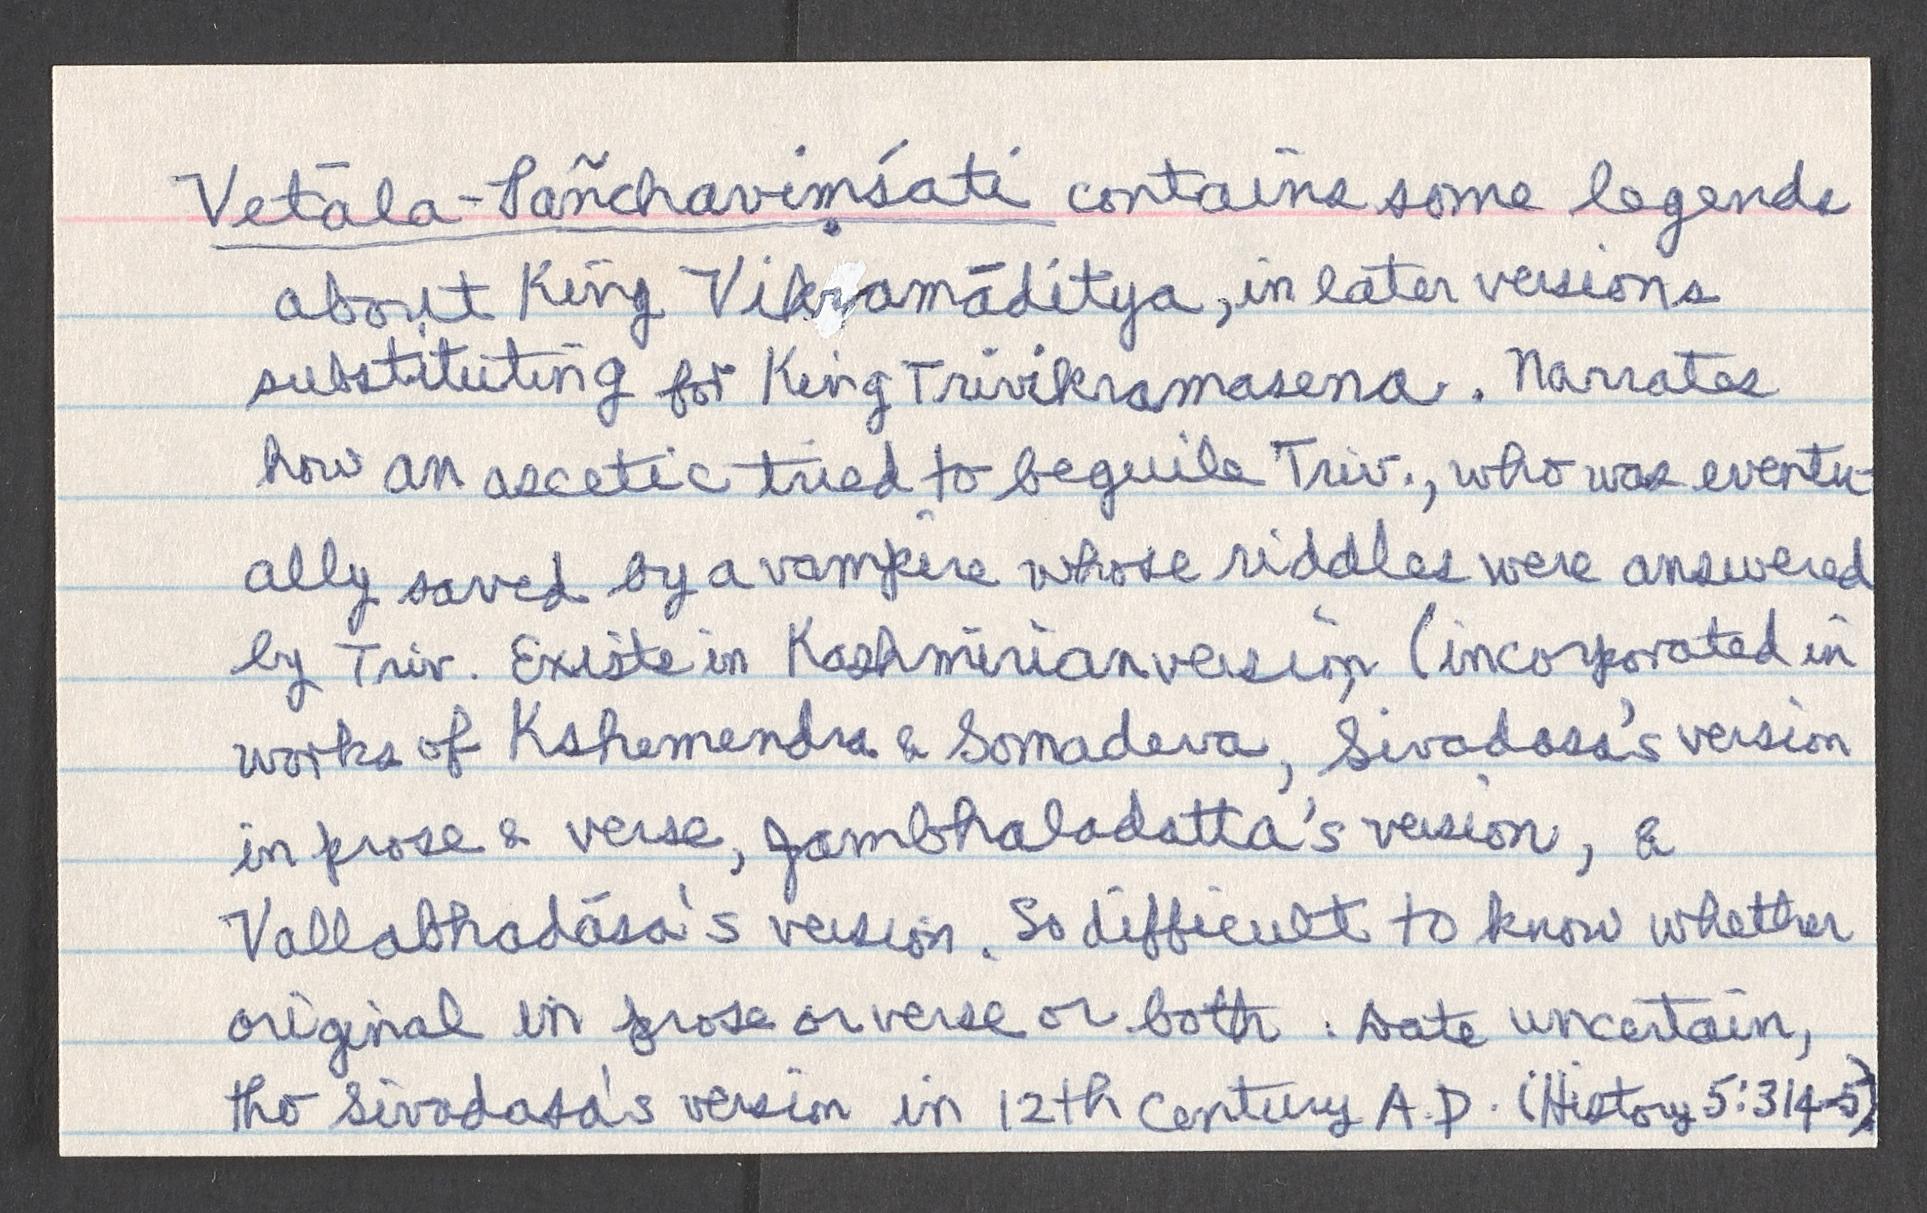 Vetāla-Pañchaviṃśati contains some legends
about King Vikramāditya, in later versions
substituting for King Trivikramasena. Narrates
how an ascetic tried to beguile Triv., who was eventu-
ally saved by a vampire whose riddles were answered
by Triv. Exists in Kashmirian version (incorporated in
works of Kshemendra & Somadeva, Sivadasa's version
in prose & verse, Jambhaladatta's version, &
Vallabhadāsa's version. So difficult to know whether
original in prose or verse or both. Date uncertain,
tho Sivadasa's version in 12th century A.D. (History 5:314-5)